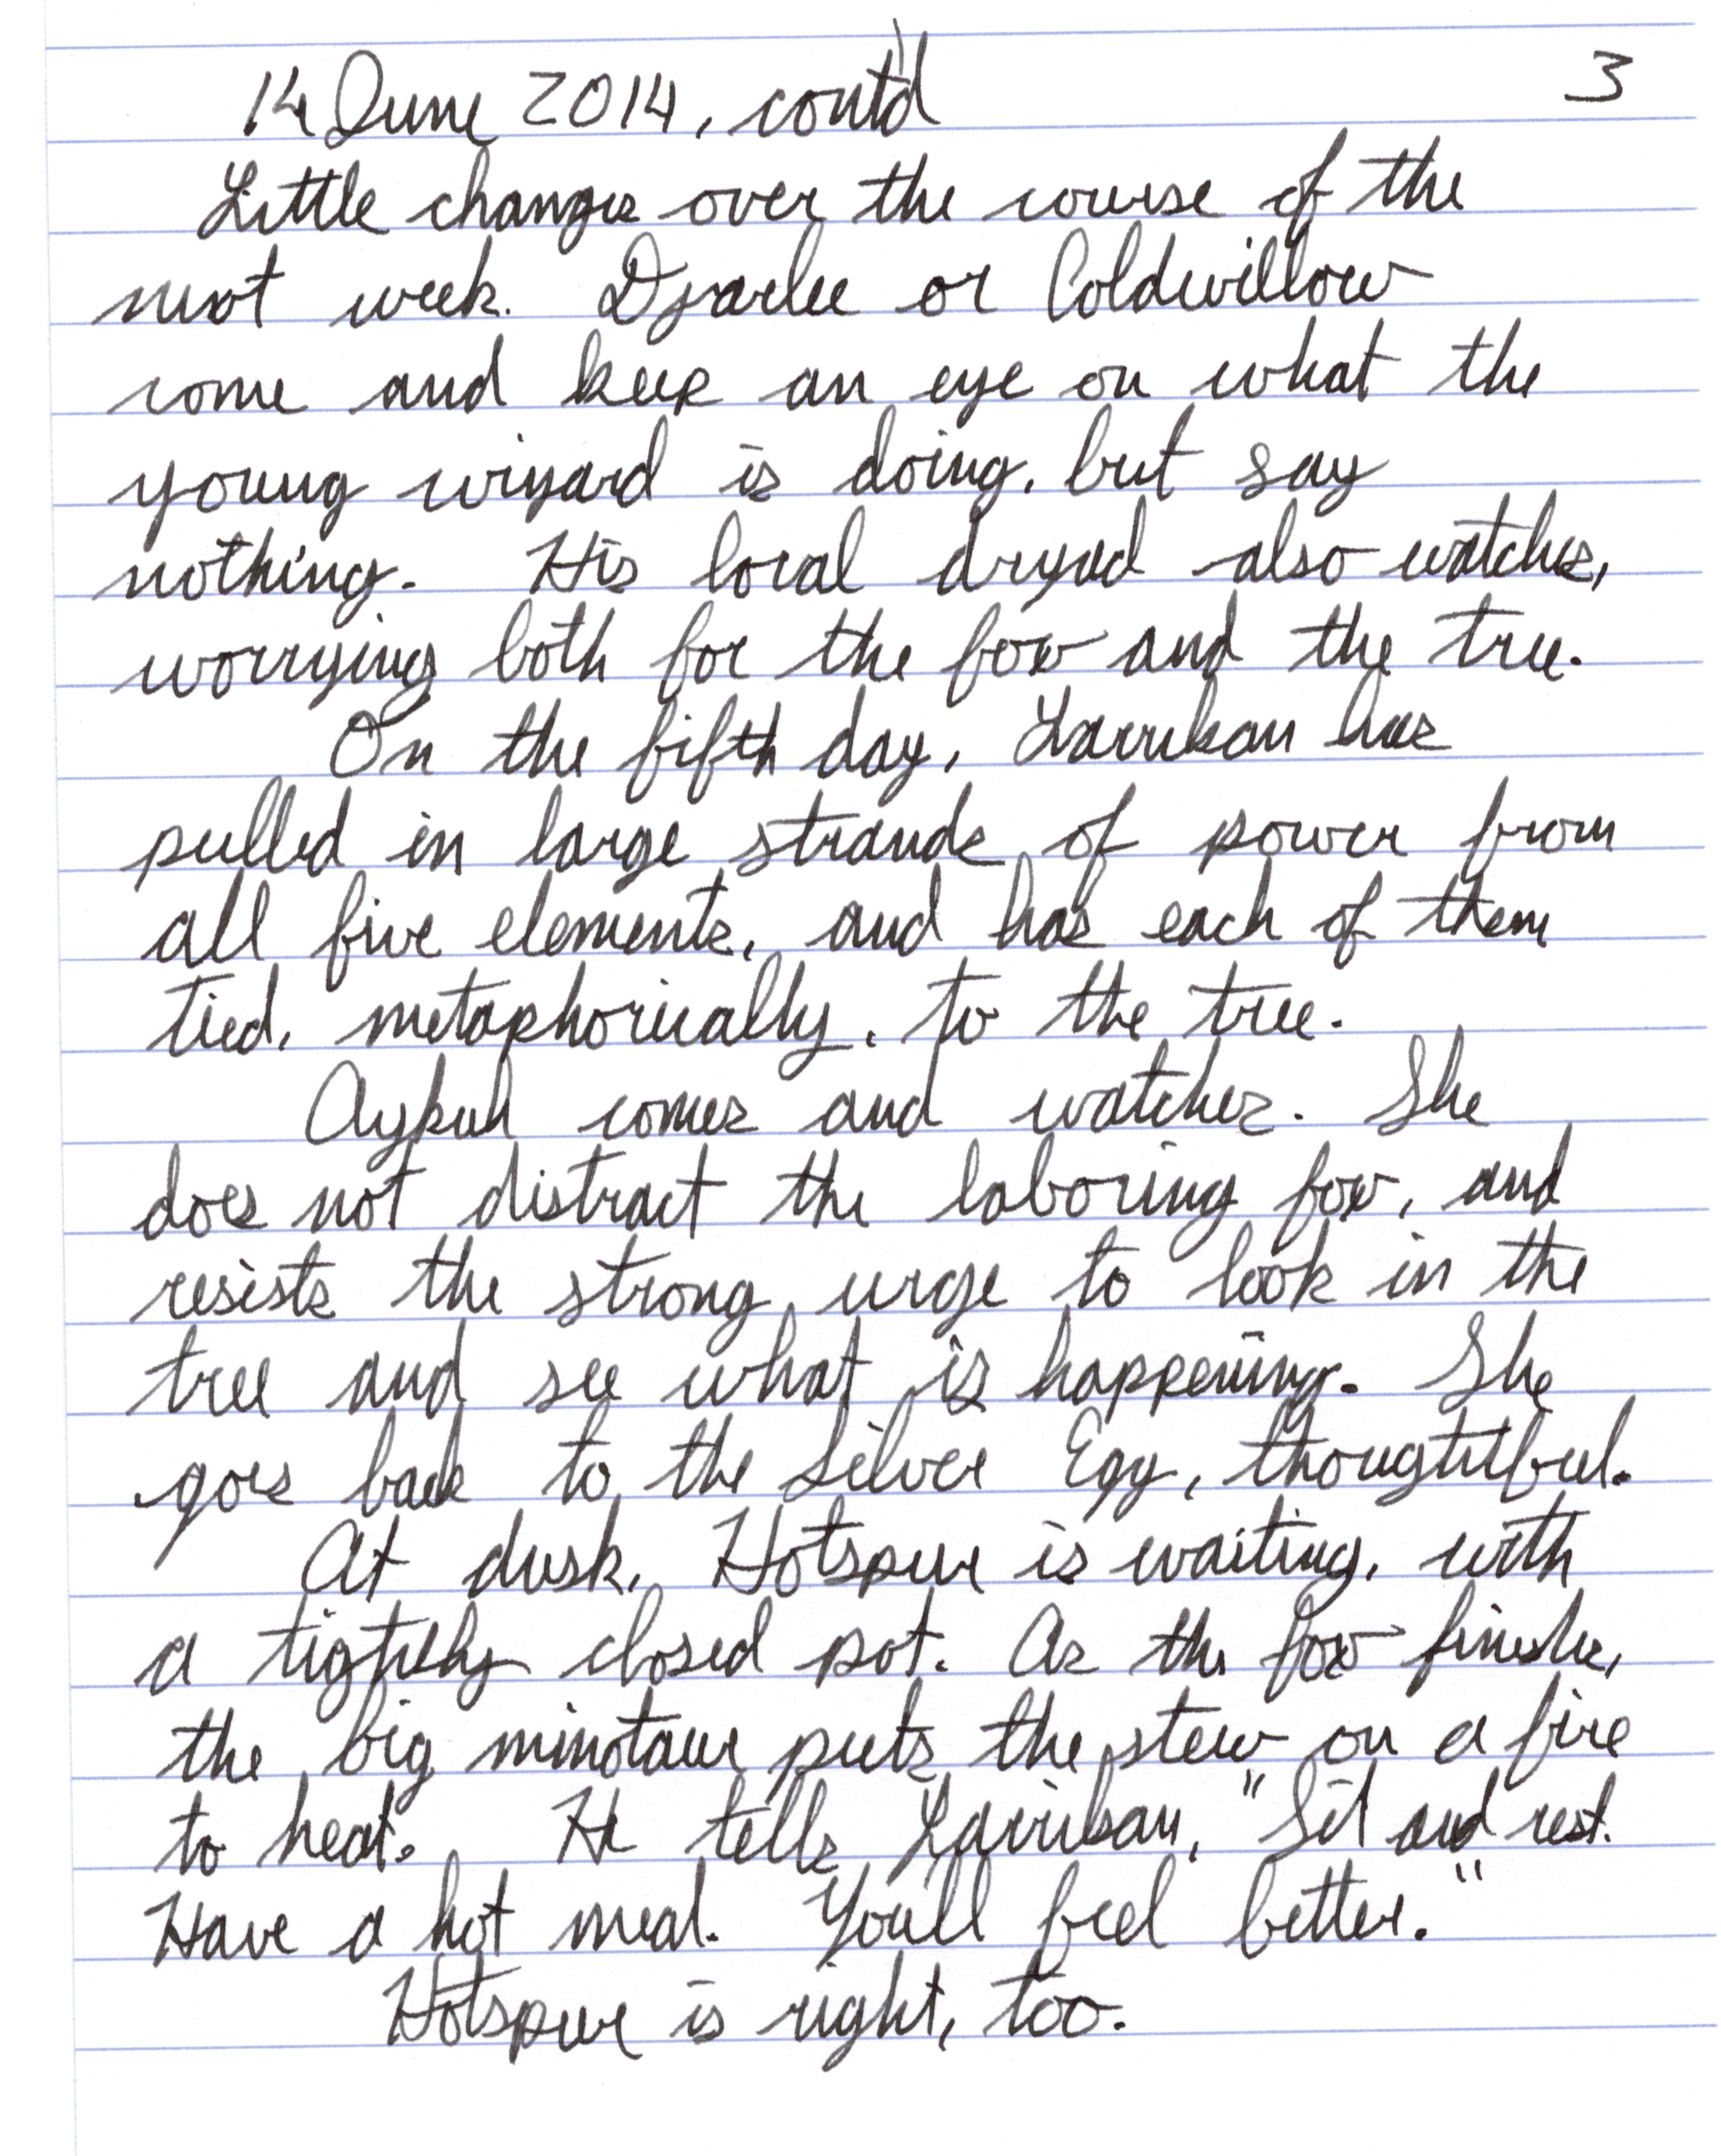 14 June 2014, cont'd 3
Little changes over the course of the
next week. Dyarlee or Coldwillow
come and keep an eye on what the
young wizard is doing, but say
nothing. His local dryad also watches,
worrying both for the fox and the tree.
On the fifth day, Larrikan has
pulled in large strands of power from
all five elements, and has each of them
tied, metaphorically, to the tree.
comes and watches. She
does not distract the laboring fox, and
resists the strong urge to look in the
tree and see what is happening. She
goes back to the Silver Egg, thoughtful.
At dusk, Hotspur is waiting, with
a tightly closed pot. As the fox finishes,
the big minotaur puts the stew on a fire
to heat. He tells Larrikan, "Sit and rest.
Have a hot meal. You'll feel better."
Hotspur is right, too.